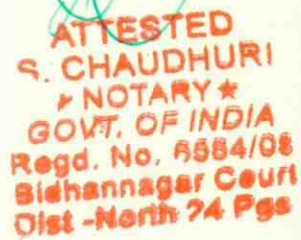 ATTESTED
S. CHAUDHURI
★ NOTARY ★
GOVT. OF INDIA
Regd. No. 6584/08
Bidhannagar Court
Dist -North 24 Pgs